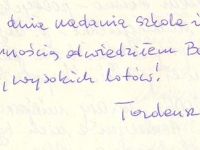 dnia nadania szkole i
nością odwiedziłem Bo
"wysokich lotów!